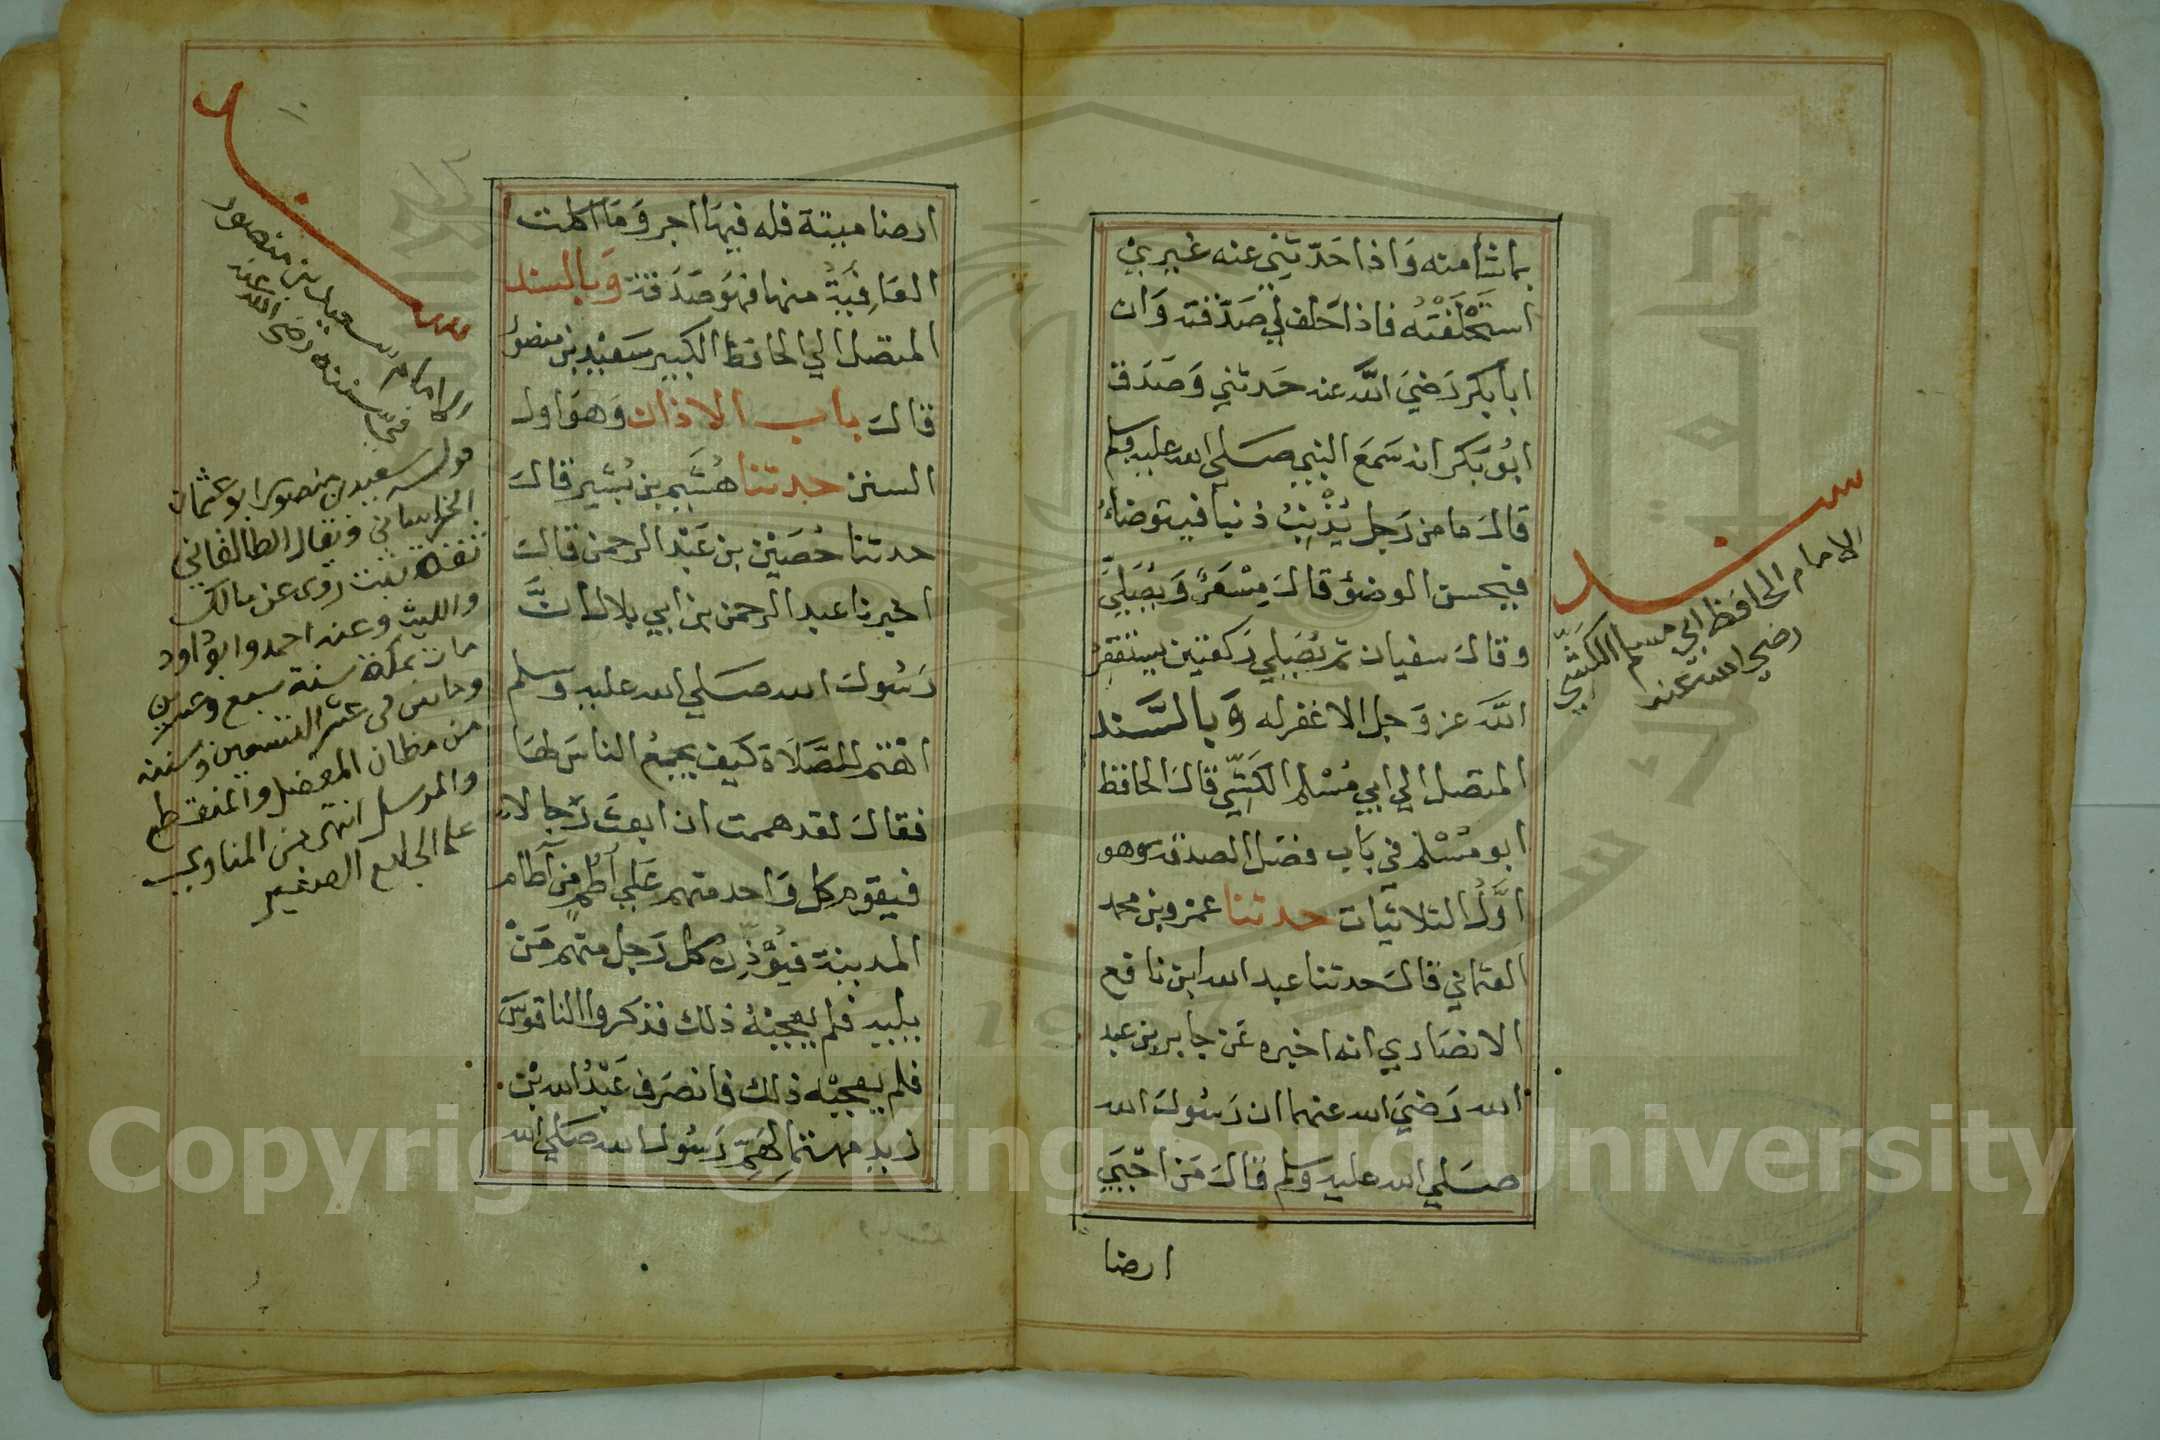 بما شآ منه وَاذا حَدّثَنِي عنه غيري
استَحْلَفْتُه فاذا حَلف لي صَدّقته وَان
ابا بكر رَضيَ اللّه عنه حَدثني وَصَدَق
ابُو بَكر انه سَمعَ النبي صَلي الله عليه وسلم
قالَ ما من رَجل يُذْنِبُ ذنبا فيتوضاُ
فيحسن الوضؤ قالَ مِسْعَرٌ وَيُصَلِّي
وقالَ سفيان ثم يُصَلي رَكعتين يستغفر
اللّهَ عز وَجل الا غفر له وَبالسَّند
المتصل الي ابي مُسْلم الكَشّي قالَ الحافظ
ابو مُسْلم في بَاب فضل الصدقة وهو
اوَّلُ الثلاثيات حدثنا عمرو بن محمد
العثماني قالَ حدثنا عبد الله ابن نافع
الانصَاري انه اخبره عَن جابر بن عبد
الله رَضيَ الله عنهما ان رَسُولَ الله
صَلي الله عليه وسلم قالَ مَن احيَي
ارضا
سند
الامام الحافظ ابي مسلم الكشّي
رضي الله عنه
ارضا ميتة فله فيهَا اجر وَمَا اكلت
العَافِيَةُ منها فهوَ صَدَقة وَبالسند
المتصل الي الحافظ الكبير سَعيْد بن منصور
قالَ باب الاذان وَهوَ اول
السنن حدثنا هُشَيم بن بُشَير قالَ
حدثنا حُصَيْن بن عَبْد الرحمن قالَ
اخبرنا عبد الرحمن بن ابي بلال انَّ
رَسُولَ الله صَلي الله عليه وسلم
اهْتم للصَّلَاة كَيف يجمعُ الناسَ لهَا
فقالَ لقد هممت ان ابعثَ رجالا
فيقوم كل وَاحد منهم عَلي اُطُمٍ من آطام
المدينة فيُؤذِّن كل رَجل منهم مَنْ
يليه فلم يعجبْهُ ذلك فذكروا الناقوسَ
فلم يعجبْه ذلك فانصَرفَ عَبْدُ الله بْن
زيدٍ مهتما لِهَمِّ رَسُول الله صَلي الله
سند
الامام سعيد بن منصور
في سننه رضى الله عنه
قوله سعيد بن منصور ابو عثمان
الخراساني ويقال الطالقاني
ثقة ثبت روى عن مالك
والليث وعنه احمد وابو داود
مات بمكة سنة سبع وعشرين
وماتين فى عشر التسعين وسننه
من مظان المعضل والمنقطع
والمرسل انتهى من المناوي
على الجامع الصغير
Copyright © King Saud University